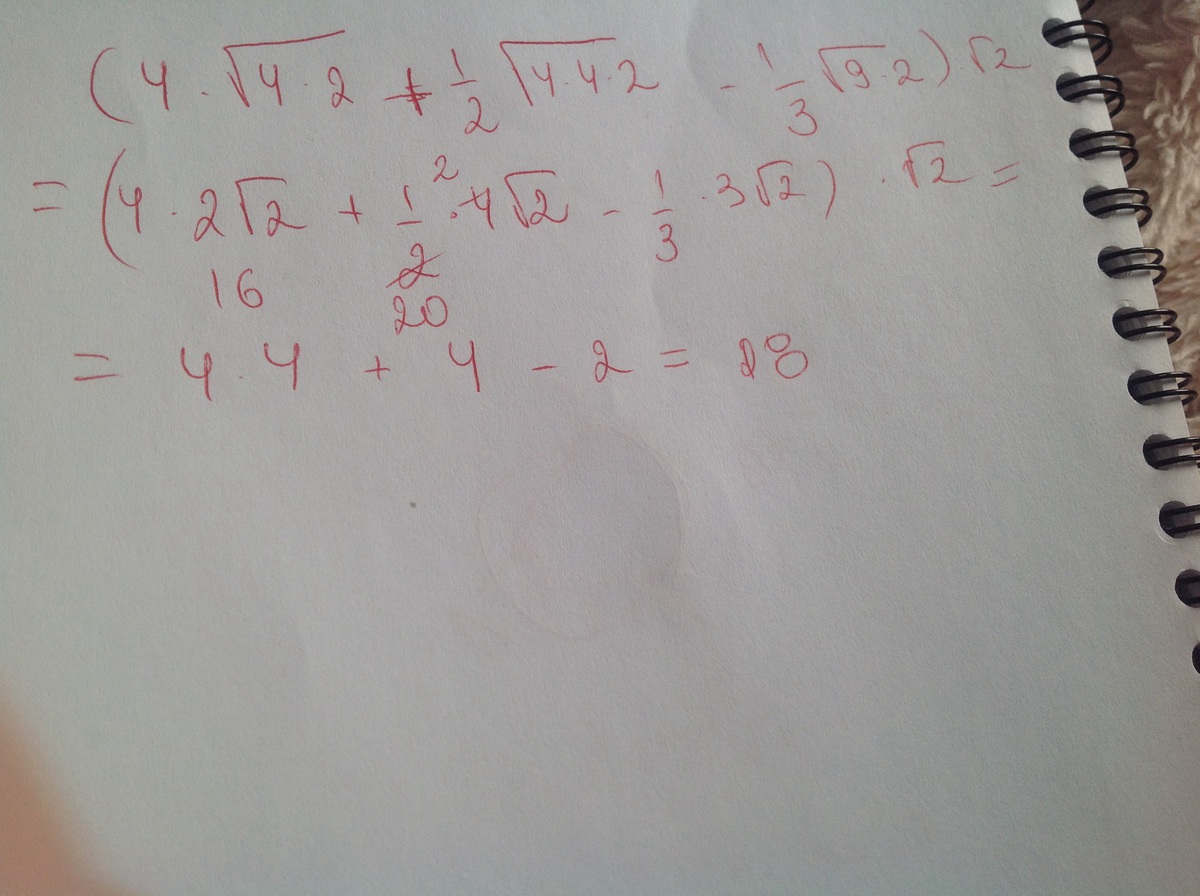 (4 · √4·2 + 1/2 √4·4·2 - 1/3 √9·2) · √2
= (4 · 2√2 + 1/2 · 4√2 - 1/3 · 3√2) · √2 =
2
16 20
= 4 · 4 + 4 - 2 = 18